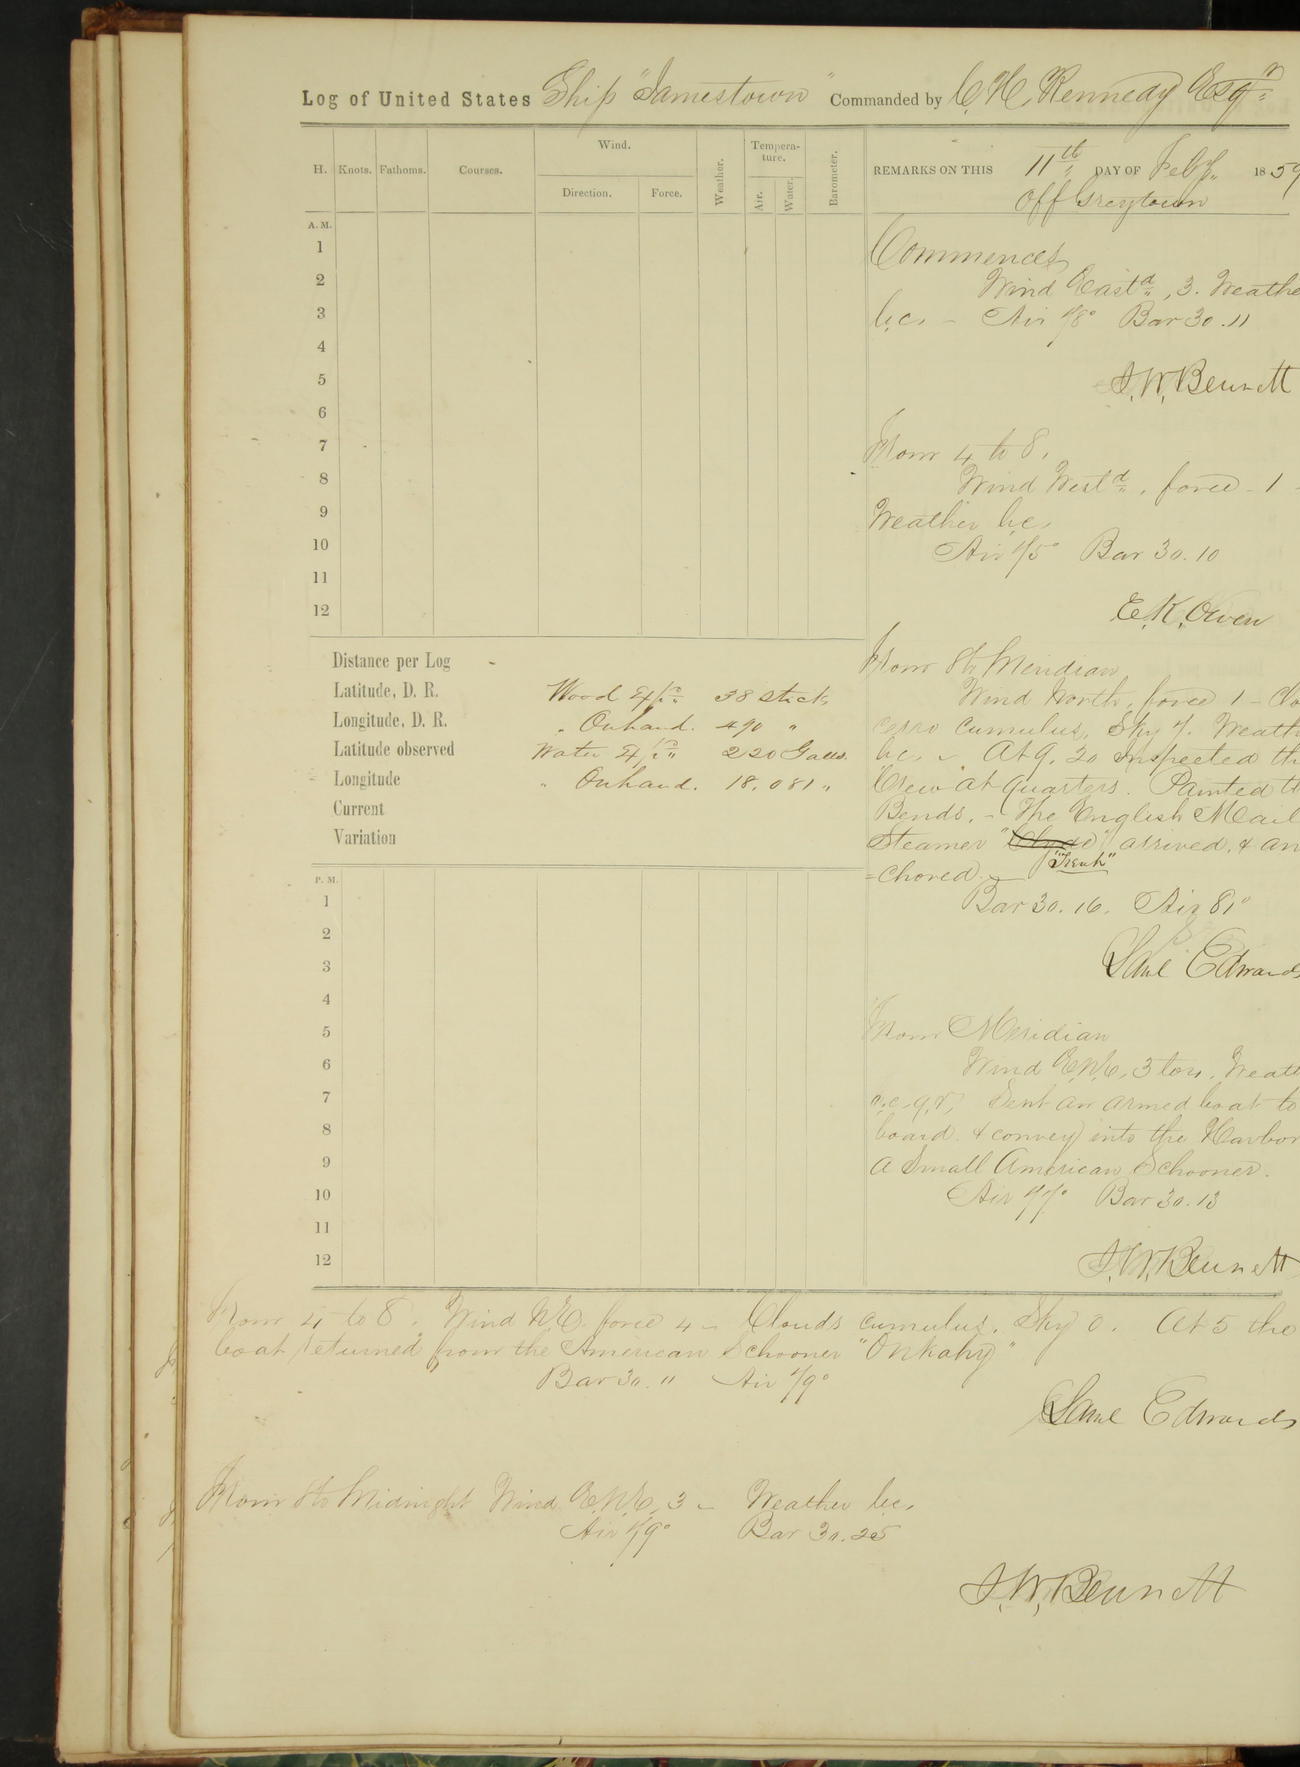 Log of United States Ship "Jamestown" Commanded by C. H. Kennedy Esqr
H. Knots. Fathoms. Courses. Wind. Direction. Force. Weather. Tempera-ture. Air. Water. Barometer.
REMARKS ON THIS 11th DAY OF Feby. 1859
Off Greytown
A. M.
1
2
3
4
5
6
7
8
9
10
11
12
Commences
Wind Eastd, 3. Weathe
b.c. - Air 78° Bar 30.11
J. W. Bennett
From 4 to 8.
Wind Westd. force - 1 -
Weather b.c.
Air 75° Bar 30.10
E. K. Owen
From 8 to Meridian
Wind North, force 1 - Clo
cirro cumulus, Sky 7. Weath
b.c. - At 9.20 Inspected th
Crew at quarters. Painted th
Bends. - The English Mail
Steamer "Clyde" arrived, & an
"Trent"
=chored. -
Bar 30.16. Air 81°
Saml Edwards
Distance per Log -
Latitude, D. R.
Longitude, D. R.
Latitude observed
Longitude
Current
Variation
Wood 38 Sticks
" Onhand. 490 "
Water 220 Galls.
" Onhand. 18.081 "
P. M.
1
2
3
4
5
6
7
8
9
10
11
12
From Meridian
Wind E.N.E, 3 to 4. Weath
o.c.q.r, Sent an armed boat to
board & convey into the Harbor
a Small American Schooner.
Air 77° Bar 30.13
J. W. Bennett
From 4 to 8. Wind N.E. force 4 - Clouds cumulus. Sky 0. At 5 the
boat returned from the American Schooner "Onkahy"
Bar 30. 11 Air 79°
Saml Edwards
From 8 to Midnight Wind E.N.E, 3 - Weather b.c.
Air 79° Bar 30.25
J. W. Bennett